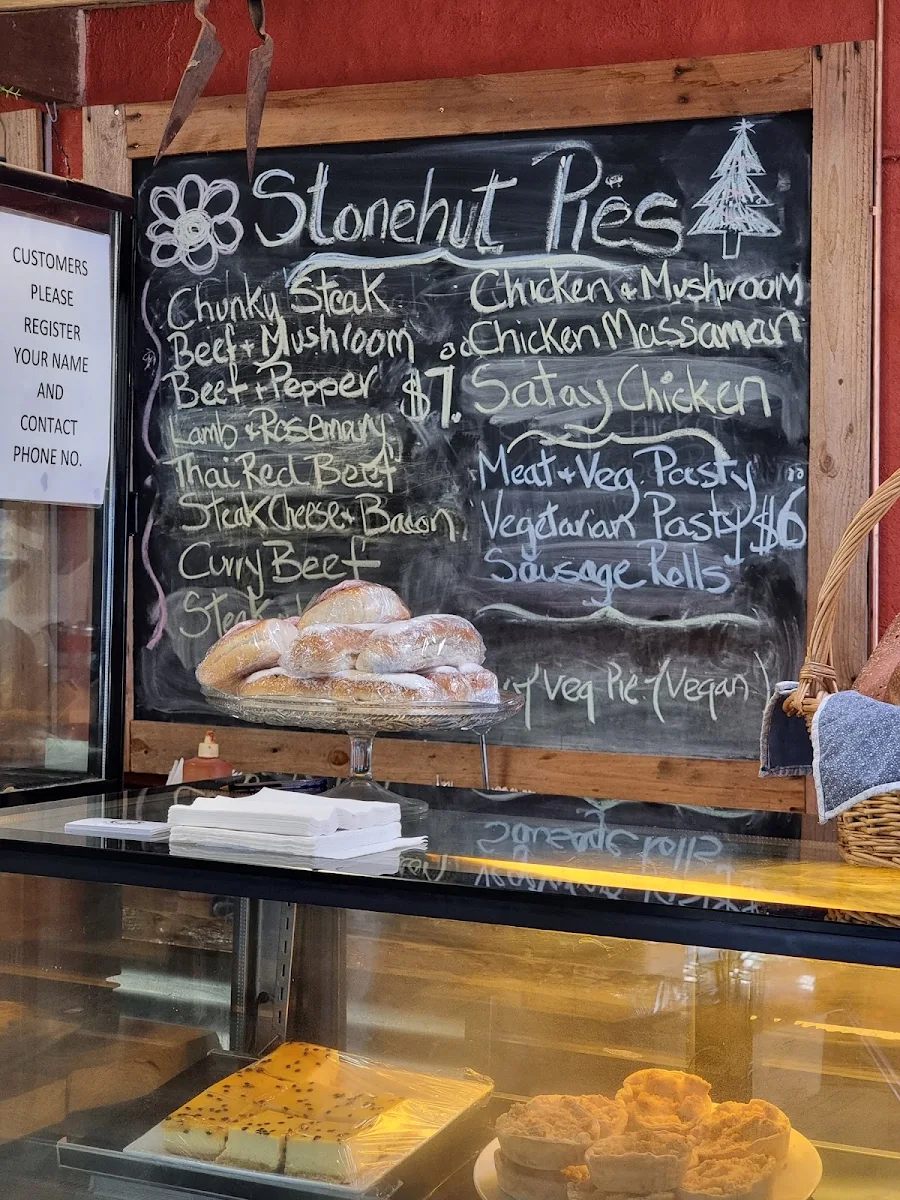 CUSTOMERS
PLEASE
REGISTER
YOUR NAME
AND
CONTACT
PHONE NO.
Stonehut Pies
Chunky Steak
Beef + Mushroom
Beef + Pepper
Lamb + Rosemary
Thai Red Beef
Steak Cheese + Bacon
Curry Beef
Steak
$7.00
Chicken + Mushroom
Chicken Massaman
Satay Chicken
Meat + Veg. Pasty
Vegetarian Pasty $6.00
Sausage Rolls
Veg Pie (Vegan)